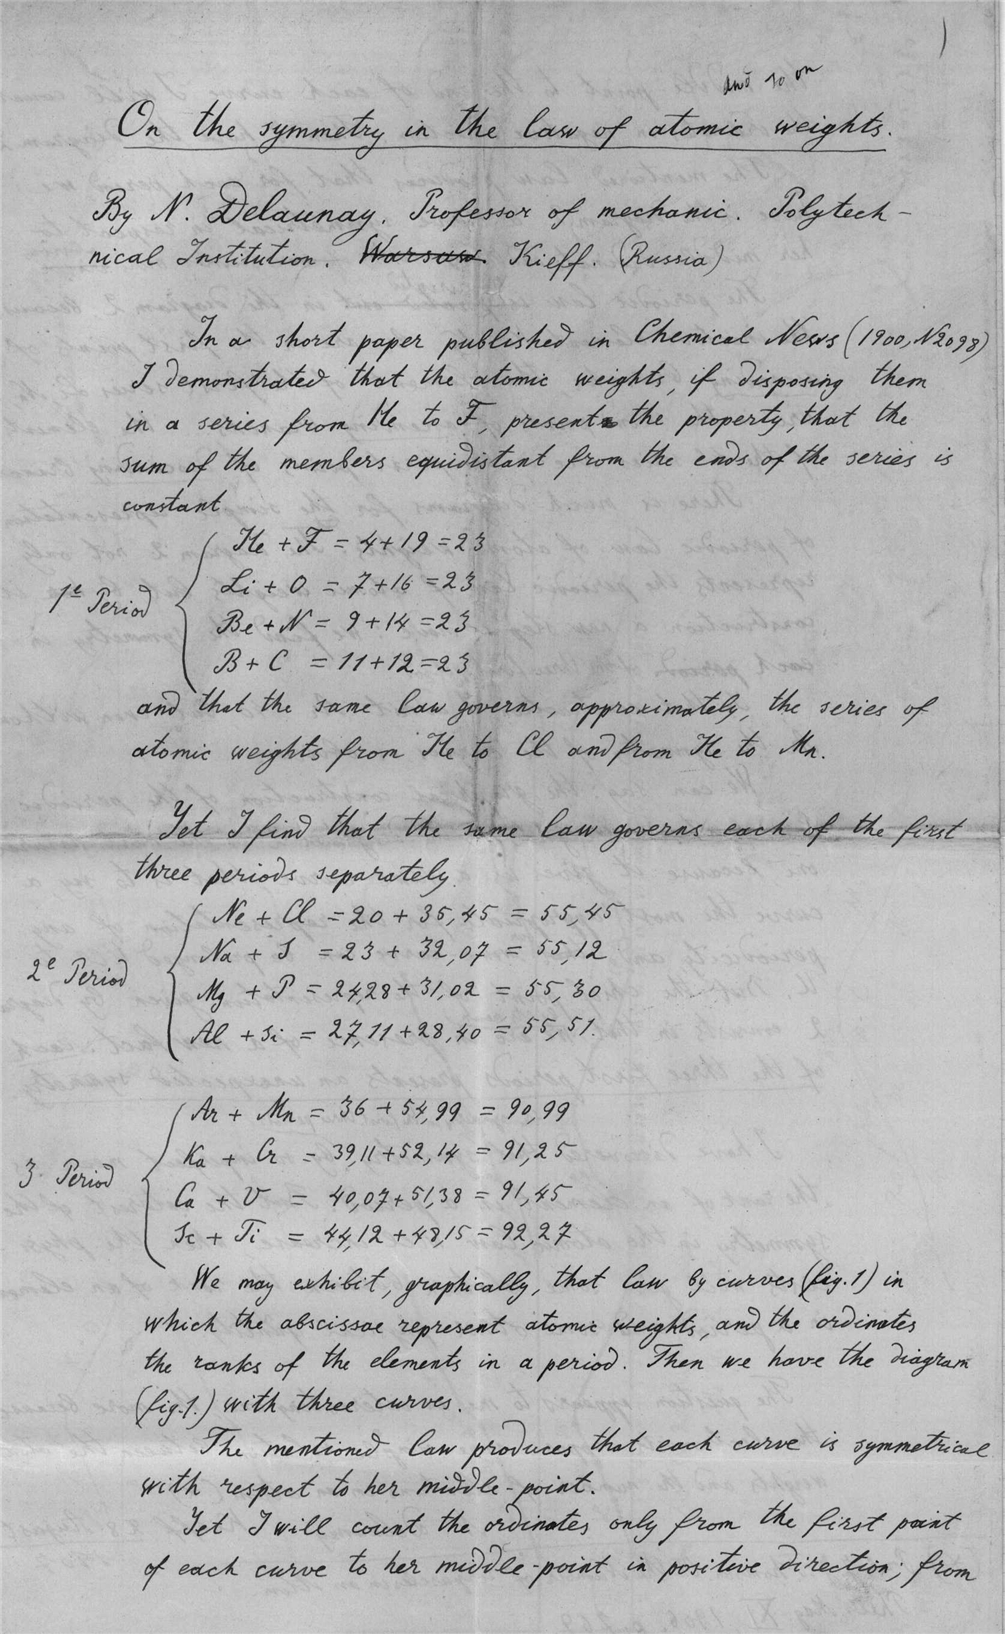 1
and so on
On the symmetry in the law of atomic weights.
By N. Delaunay. Professor of mechanic. Polytech-
nical Institution. Warsaw. Kieff. (Russia)
In a short paper published in Chemical News (1900, N2098)
I demonstrated that the atomic weights, if disposing them
in a series from He to F, present the property, that the
sum of the members equidistant from the ends of the series is
constant
1e Period
He + F = 4+19 = 23
Li + O = 7+16 = 23
Be + N = 9+14 = 23
B + C = 11+12 = 23
and that the same law governs, approximately, the series of
atomic weights from He to Cl and from He to Mn.
Yet I find that the same law governs each of the first
three periods separately.
2e Period
Ne + Cl = 20 + 35,45 = 55,45
Na + S = 23 + 32,07 = 55,12
Mg + P = 24,28 + 31,02 = 55,30
Al + Si = 27,11 + 28,40 = 55,51.
3 Period
Ar + Mn = 36 + 54,99 = 90,99
Ka + Cr = 39,11 + 52,14 = 91,25
Ca + V = 40,07 + 51,38 = 91,45
Sc + Ti = 44,12 + 48,15 = 92,27
We may exhibit, graphically, that law by curves (fig. 1) in
which the abscissae represent atomic weights, and the ordinates
the ranks of the elements in a period. Then we have the diagram
(fig. 1.) with three curves.
The mentioned law produces that each curve is symmetrical
with respect to her middle-point.
Yet I will count the ordinates only from the first point
of each curve to her middle-point in positive direction; from